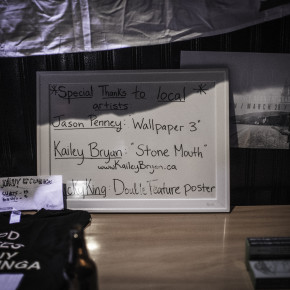 *Special Thanks to local*
artists
Jason Penney: "Wallpaper 3"
Kailey Bryan: "Stone Mouth"
www.KaileyBryan.ca
King: Double Feature poster